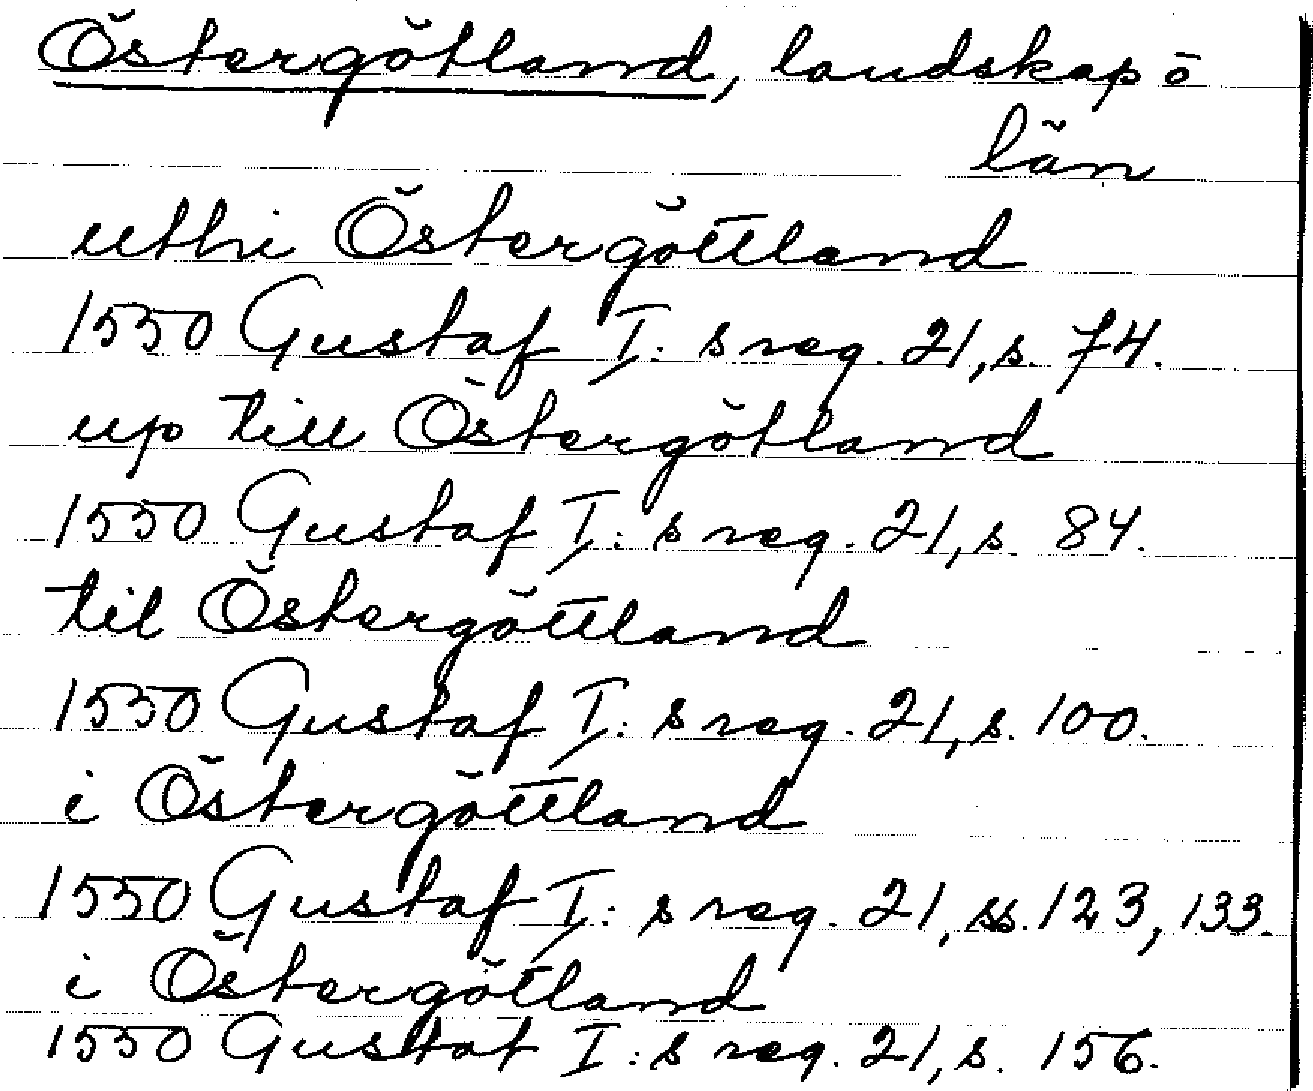 Östergötland, landskap o
län
uthi Östergöttland
1550 Gustaf I:s reg. 21, s. 74.
up till Östergötland
1550 Gustaf I:s reg. 21, s. 84.
til Östergöttland
1550 Gustaf I:s reg. 21, s. 100.
i Östergöttland
1550 Gustaf I:s reg. 21, ss. 123, 133.
i Östergötland
1550 Gustaf I:s reg. 21, s. 156.